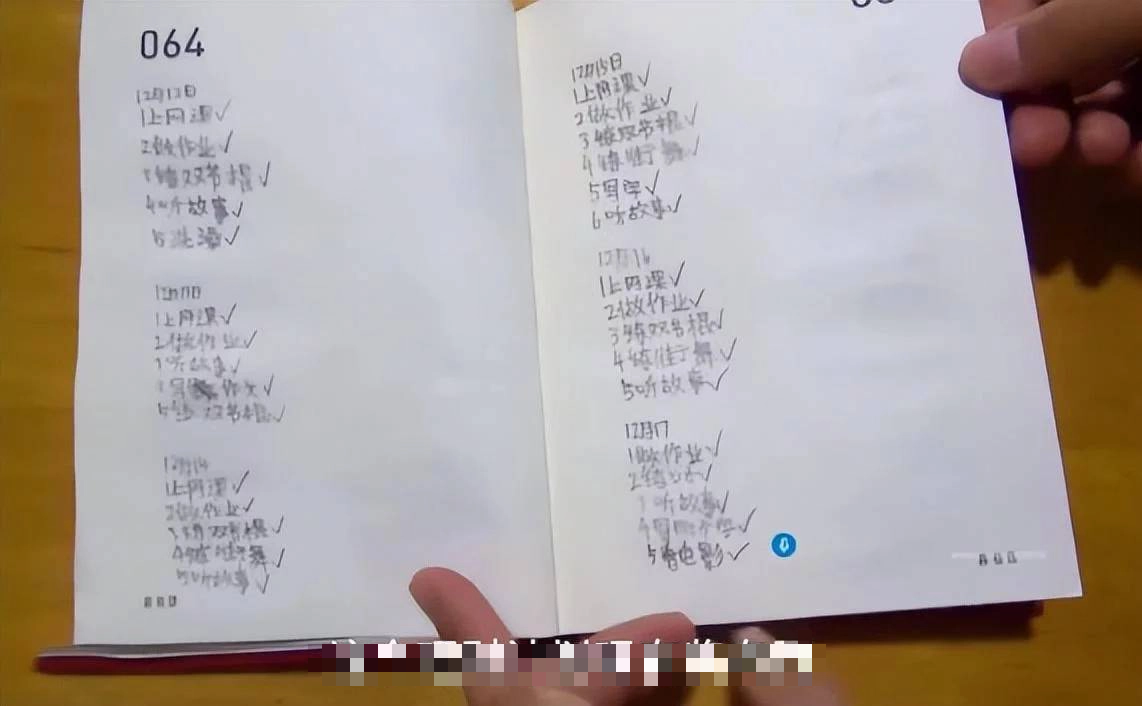 064
12月12日
1上网课✓
2做作业✓
3练双节棍✓
4听故事✓
5洗澡✓
12月13日
1上网课✓
2做作业✓
3听故事✓
作文✓
5练双节棍✓
12月14
1上网课✓
2做作业✓
3练双节棍✓
4练街舞✓
5听故事✓
12月15日
1上网课✓
2做作业✓
3练双节棍✓
4练街舞✓
5写字✓
6听故事✓
12月16
1上网课✓
2做作业✓
3练双节棍✓
4练街舞✓
5听故事✓
12月17
1做作业✓
3听故事✓
5看电影✓